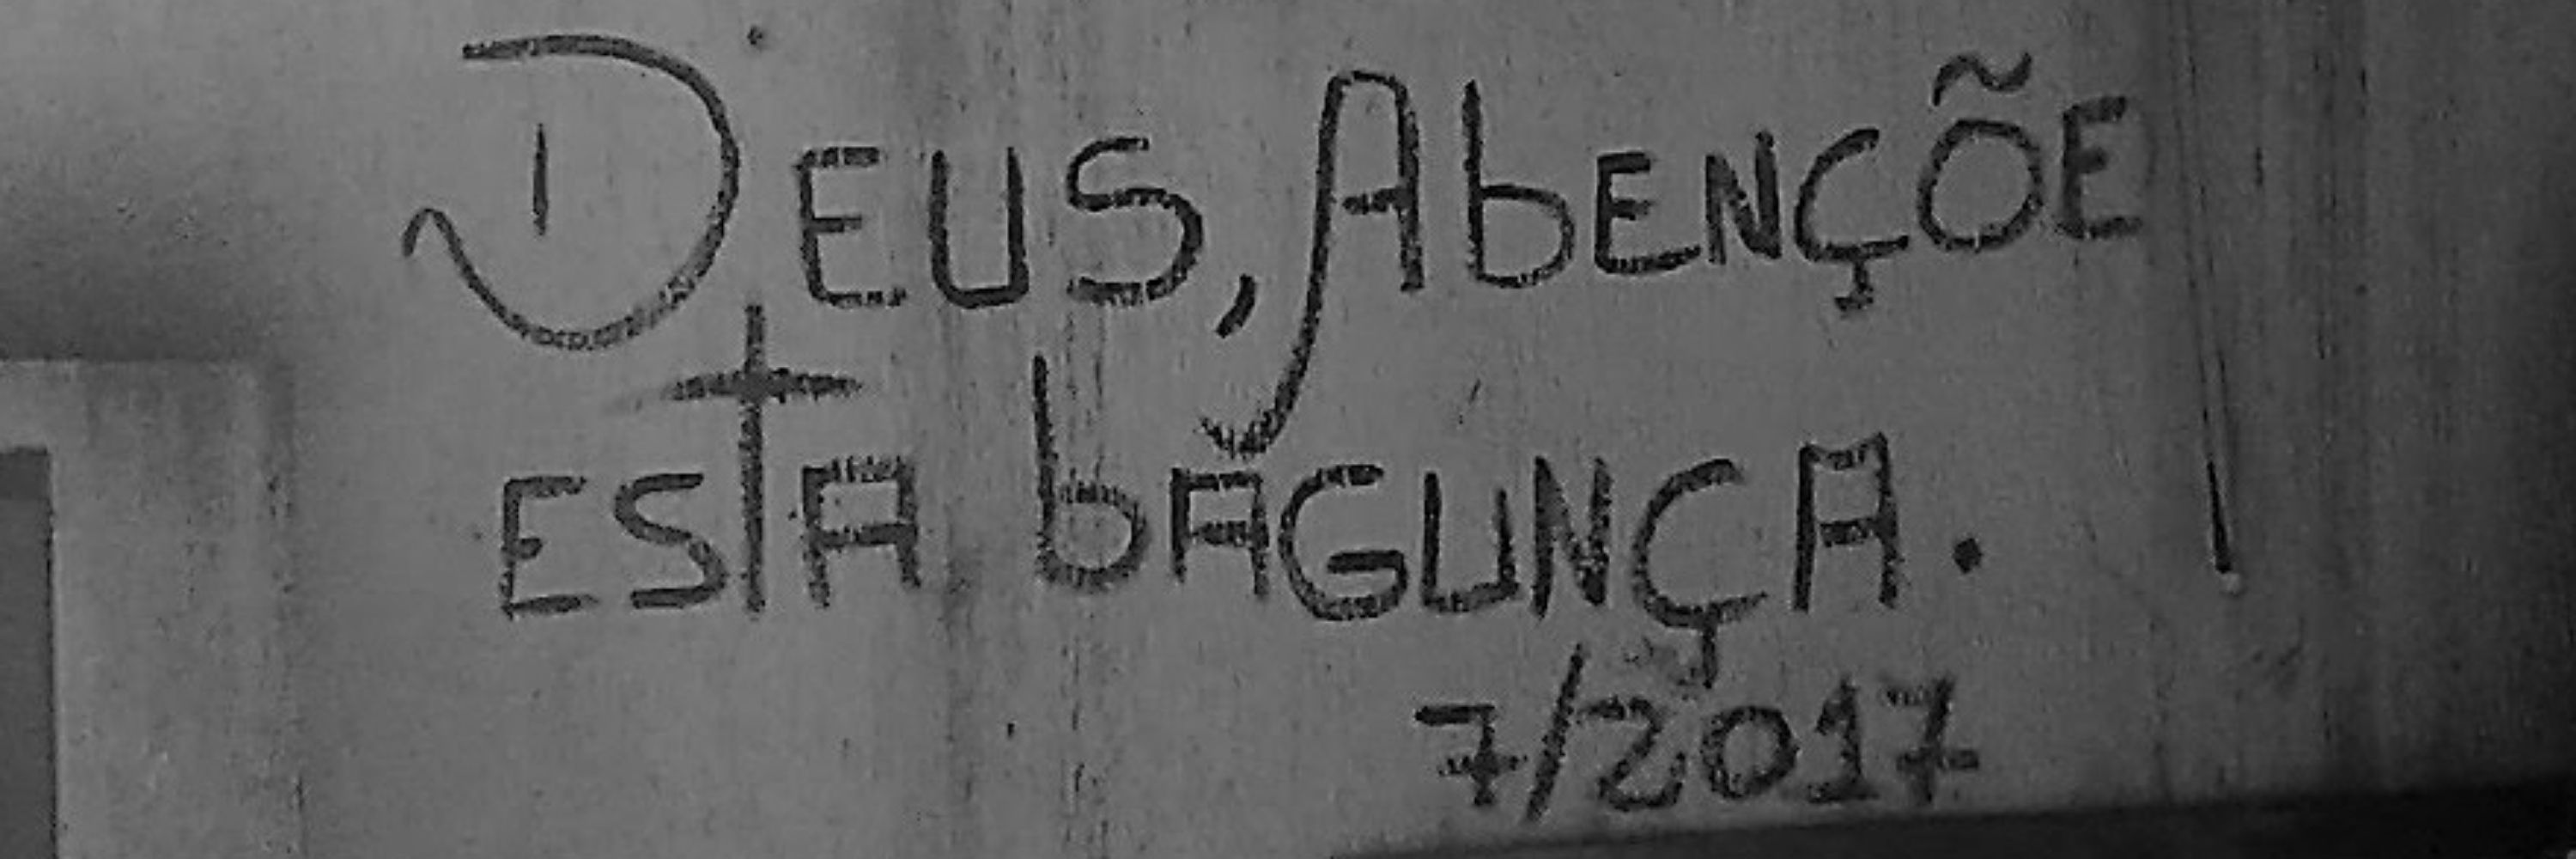 DEUS, AbENÇÕE
ESTA bAGUNÇA.
7/2017